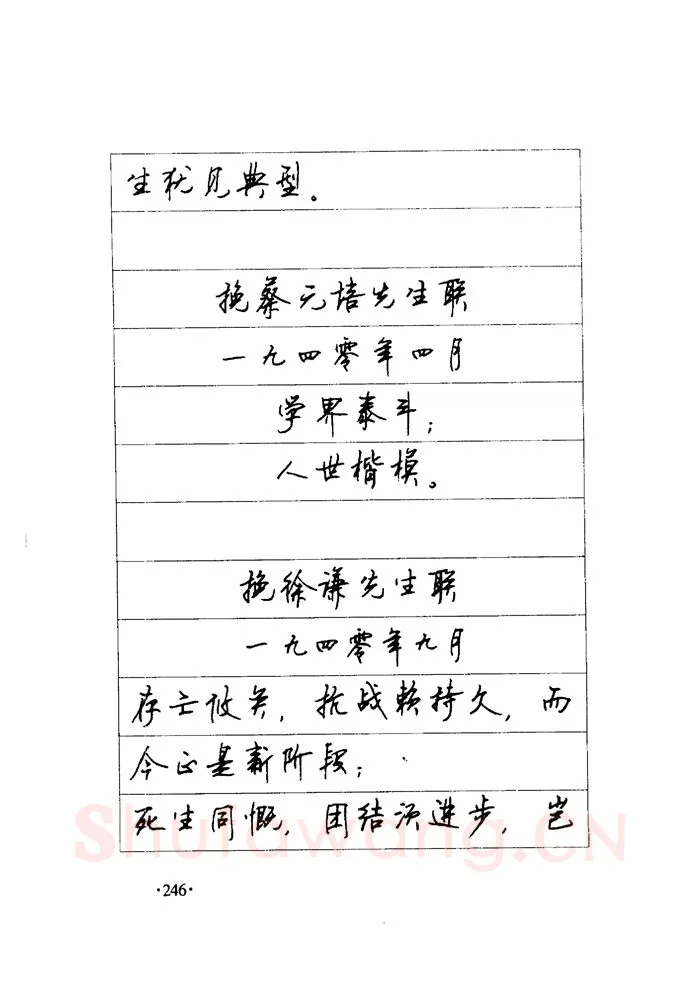 生犹见典型。
挽蔡元培先生联
一九四零年四月
学界泰斗；
人世楷模。
挽徐谦先生联
一九四零年九月
存亡攸关，抗战赖持久，而
今正是新阶段；
死生同慨，团结须进步，岂
Shufawang.CN
·246·